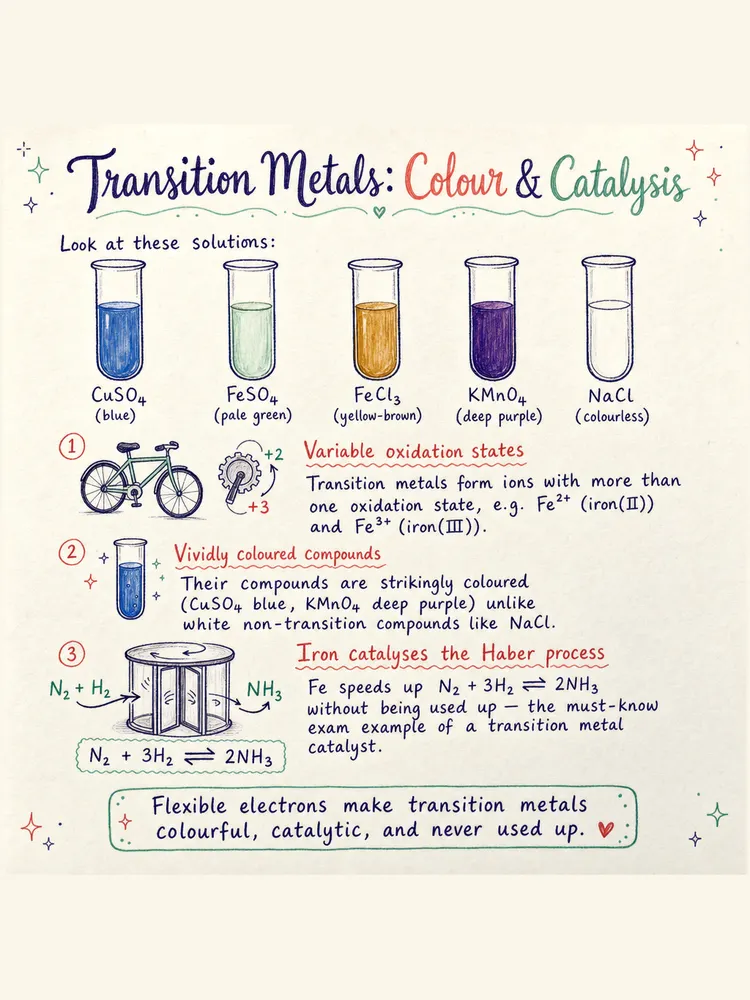 Transition Metals: Colour & Catalysis
Look at these solutions:
CuSO₄
(blue)
FeSO₄
(pale green)
FeCl₃
(yellow-brown)
KMnO₄
(deep purple)
NaCl
(colourless)
1
+2
+3
Variable oxidation states
Transition metals form ions with more than
one oxidation state, e.g. Fe²⁺ (iron(II))
and Fe³⁺ (iron(III)).
2
Vividly coloured compounds
Their compounds are strikingly coloured
(CuSO₄ blue, KMnO₄ deep purple) unlike
white non-transition compounds like NaCl.
3
N₂ + H₂
NH₃
N₂ + 3H₂ ⇌ 2NH₃
Iron catalyses the Haber process
Fe speeds up N₂ + 3H₂ ⇌ 2NH₃
without being used up — the must-know
exam example of a transition metal
catalyst.
Flexible electrons make transition metals
colourful, catalytic, and never used up.